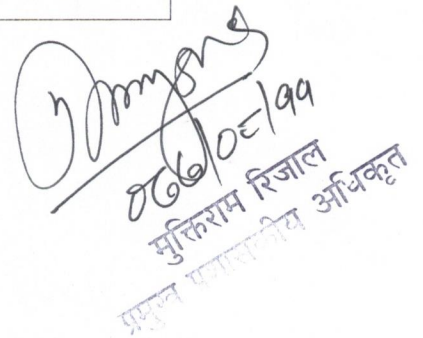 ०७७/०८/११
मुक्तिराम रिजाल
प्रमुख प्रशासकीय अधिकृत